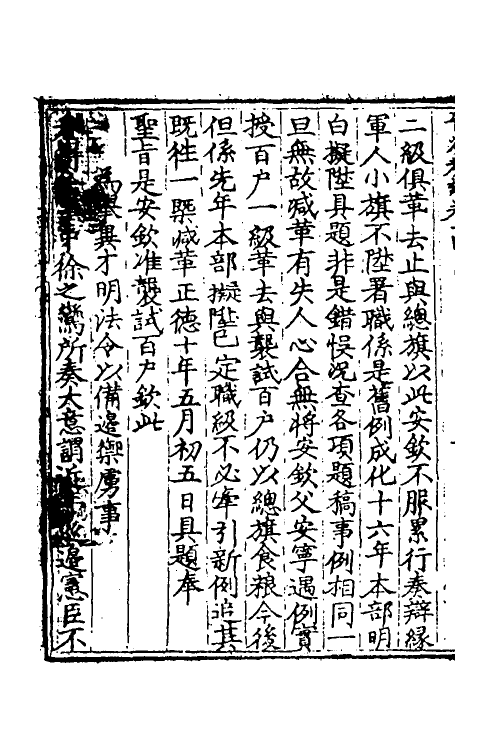 二級俱革去止與總旗以此安欽不服累行奏辯緣
軍人小旗不陞署職係是舊例成化十六年本部明
白擬陞具題非是錯悮况查各項題稿事例相同一
旦無故減革有失人心合無將安欽父安寧遇例實
授百户一級革去與襲試百户仍以總旗食粮今後
但係先年本部擬陞已定職級不必牽引新例追其
既徃一槩减革正徳十年五月初五日具題奉
聖旨是安欽准襲試百户欽此
為舉異才明法令以備邊禦虜事
徐之鸞所奏大意謂近邊憲臣不